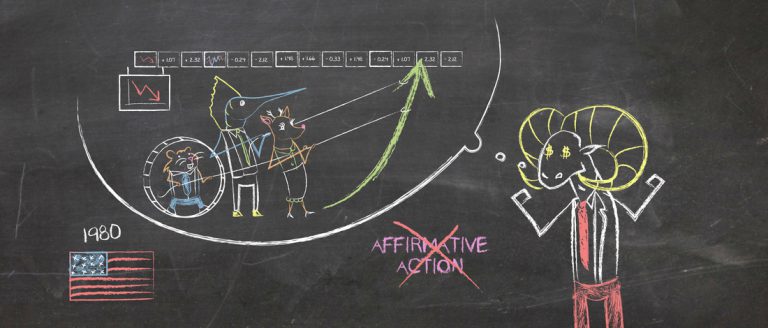 + 1.07 + 2.32 -0.24 -2.12 + 1.98 + 1.66 -0.33 + 1.98 -0.24 + 1.07 2.32 -2.12
1980
$ $
AFFIRMATIVE
ACTION